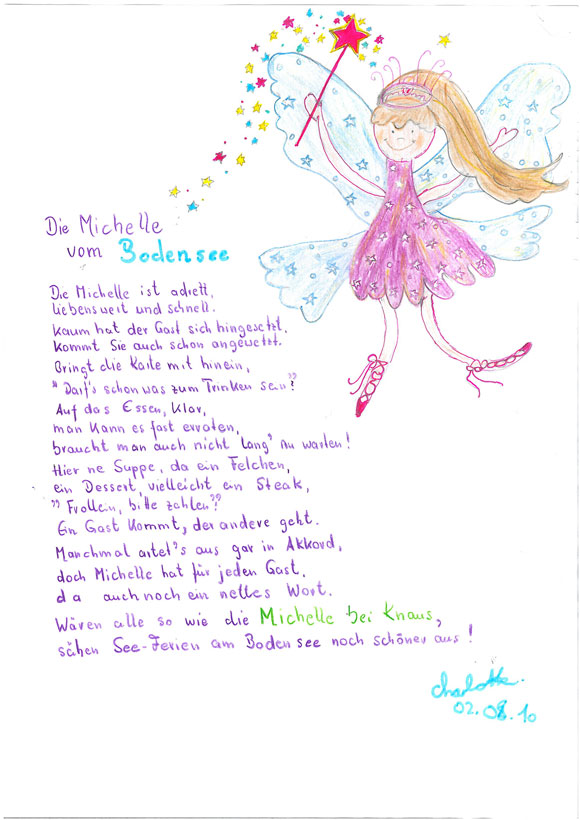 Die Michelle
vom Bodensee
Die Michelle ist adrett,
liebenswert und schnell.
Kaum hat der Gast sich hingesetzt,
kommt Sie auch schon angewetzt.
Bringt die Karte mit hinein,
"Darf's schon was zum Trinken sein?"
Auf das Essen, klar,
man kann es fast erraten,
braucht man auch nicht lang' zu warten!
Hier ne Suppe, da ein Felchen,
ein Dessert, vielleicht ein Steak,
"Frollein, bitte zahlen?"
Ein Gast kommt, der andere geht.
Manchmal artet's aus gar in Akkord,
doch Michelle hat für jeden Gast,
da auch noch ein nettes Wort.
Wären alle so wie die Michelle bei Knaus,
sähen See-Ferien am Bodensee noch schöner aus!
Charlotte.
02.08.10